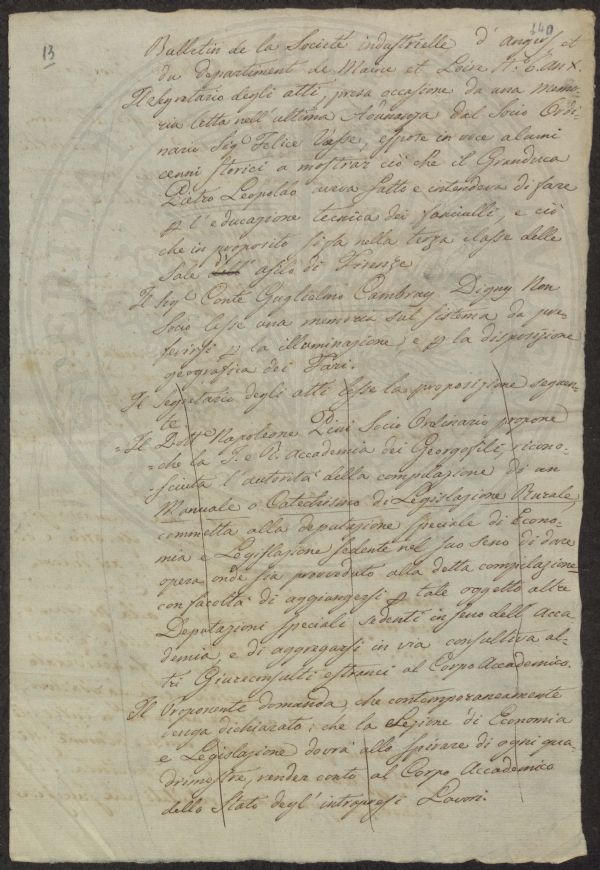 13
140
Bulletin de la Societé industrielle d'Angers et
du Departiment de Maine et Loire N.° 6. An X.
Il Segretario degli atti presa occasione da una memo-
ria letta nell'ultima Adunanza dal Socio Ordi-
nario Sig.e Felice Vasse, espose in voce alcuni
cenni storici a mostrar ciò che il Granduca
Pietro Leopoldo aveva fatto e intendeva di fare
p l'educazione tecnica dei fanciulli, e ciò
che in proposito si fa nella terza classe delle
Sale asilo di Firenze
Il Sig.e Conte Guglielmo Cambray Digny Non
Socio lesse una memoria sul sistema da pre-
ferirsi p la illuminazione, e p la disposizione
geografica dei Fari.
Il Segretario degli atti lesse la proposizione seguen-
te
=Il Dott.e Napoleone Pini Socio Ordinario propone
=che la I. e R. Accademia dei Georgofili, ricono-
=sciuta l'autorità della compilazione di un
Manuale o Catechismo di Legislazione Rurale,
commetta alla deputazione speciale di Econo-
mia e Legislazione sedente nel suo seno di dare
opera onde sia provveduto alla detta compilazione
con facoltà di aggiungersi p tale oggetto altre
Deputazioni speciali sedenti in seno dell'Acca-
demia, e di aggregarsi in via consultiva al-
tri Giureconsulti estranei al Corpo Accademico.
Il Proponente domanda, che contemporaneamente
venga dichiarato; che la Sezione di Economia
e Legislazione dovrà allo spirare di ogni qua-
drimestre, render conto al Corpo Accademico
dello Stato degl'intrapresi Lavori.